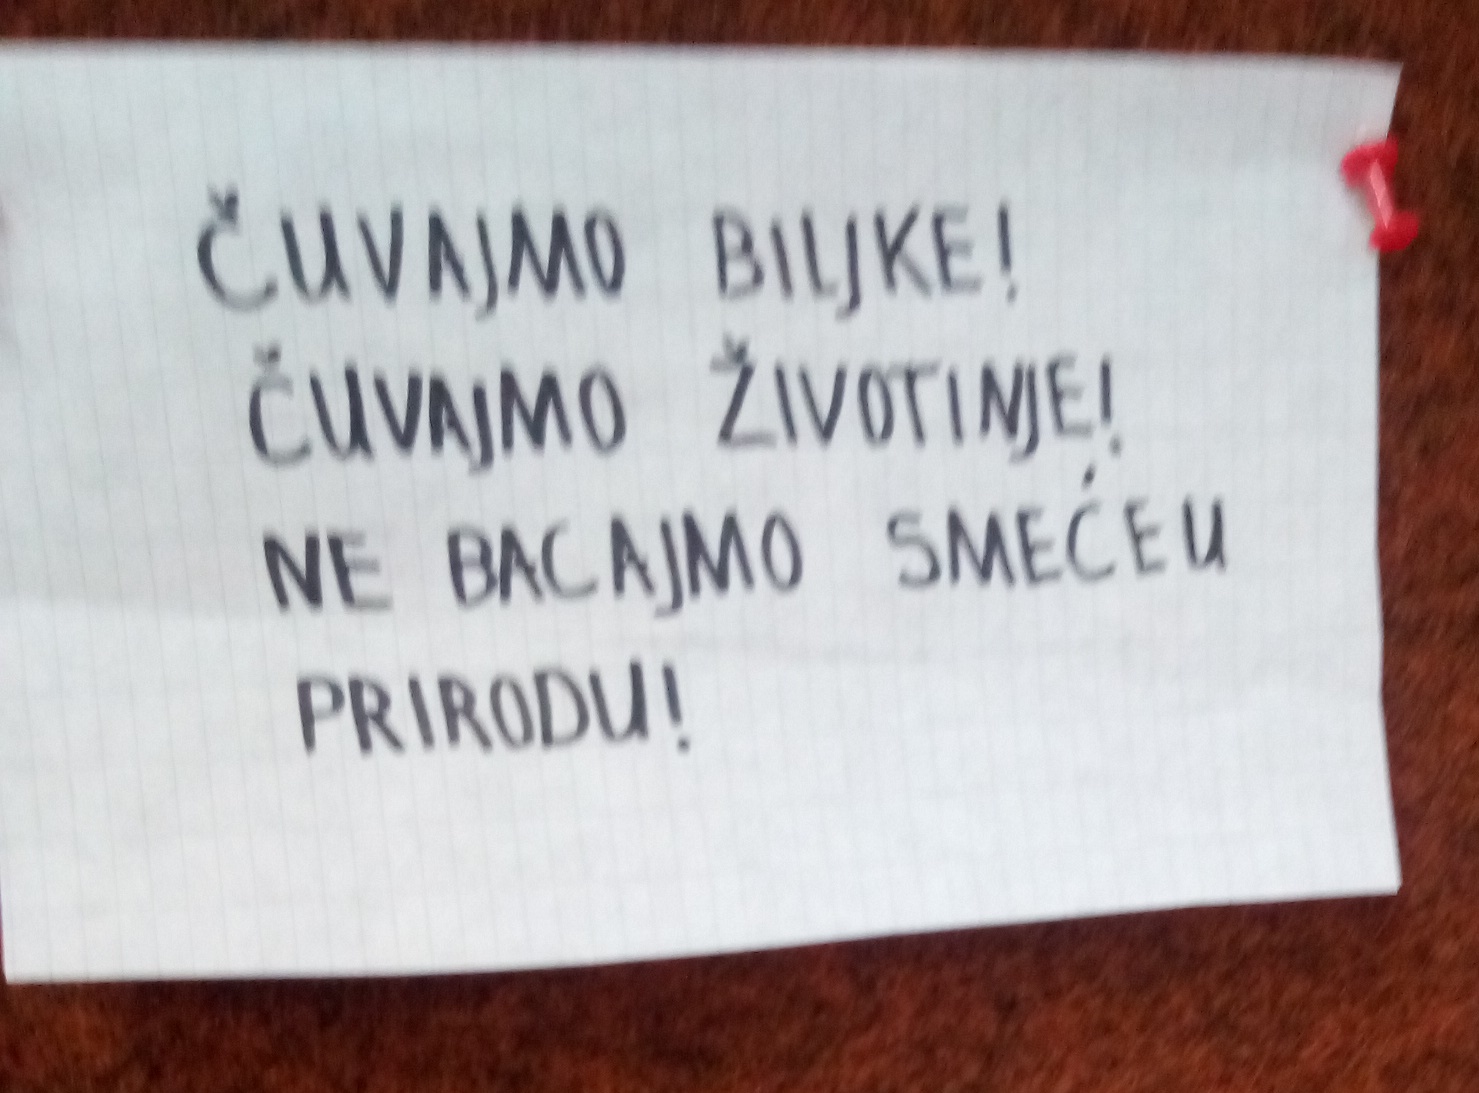 ČUVAJMO BILJKE!
ČUVAJMO ŽIVOTINJE!
NE BACAJMO SMEĆE U
PRIRODU!